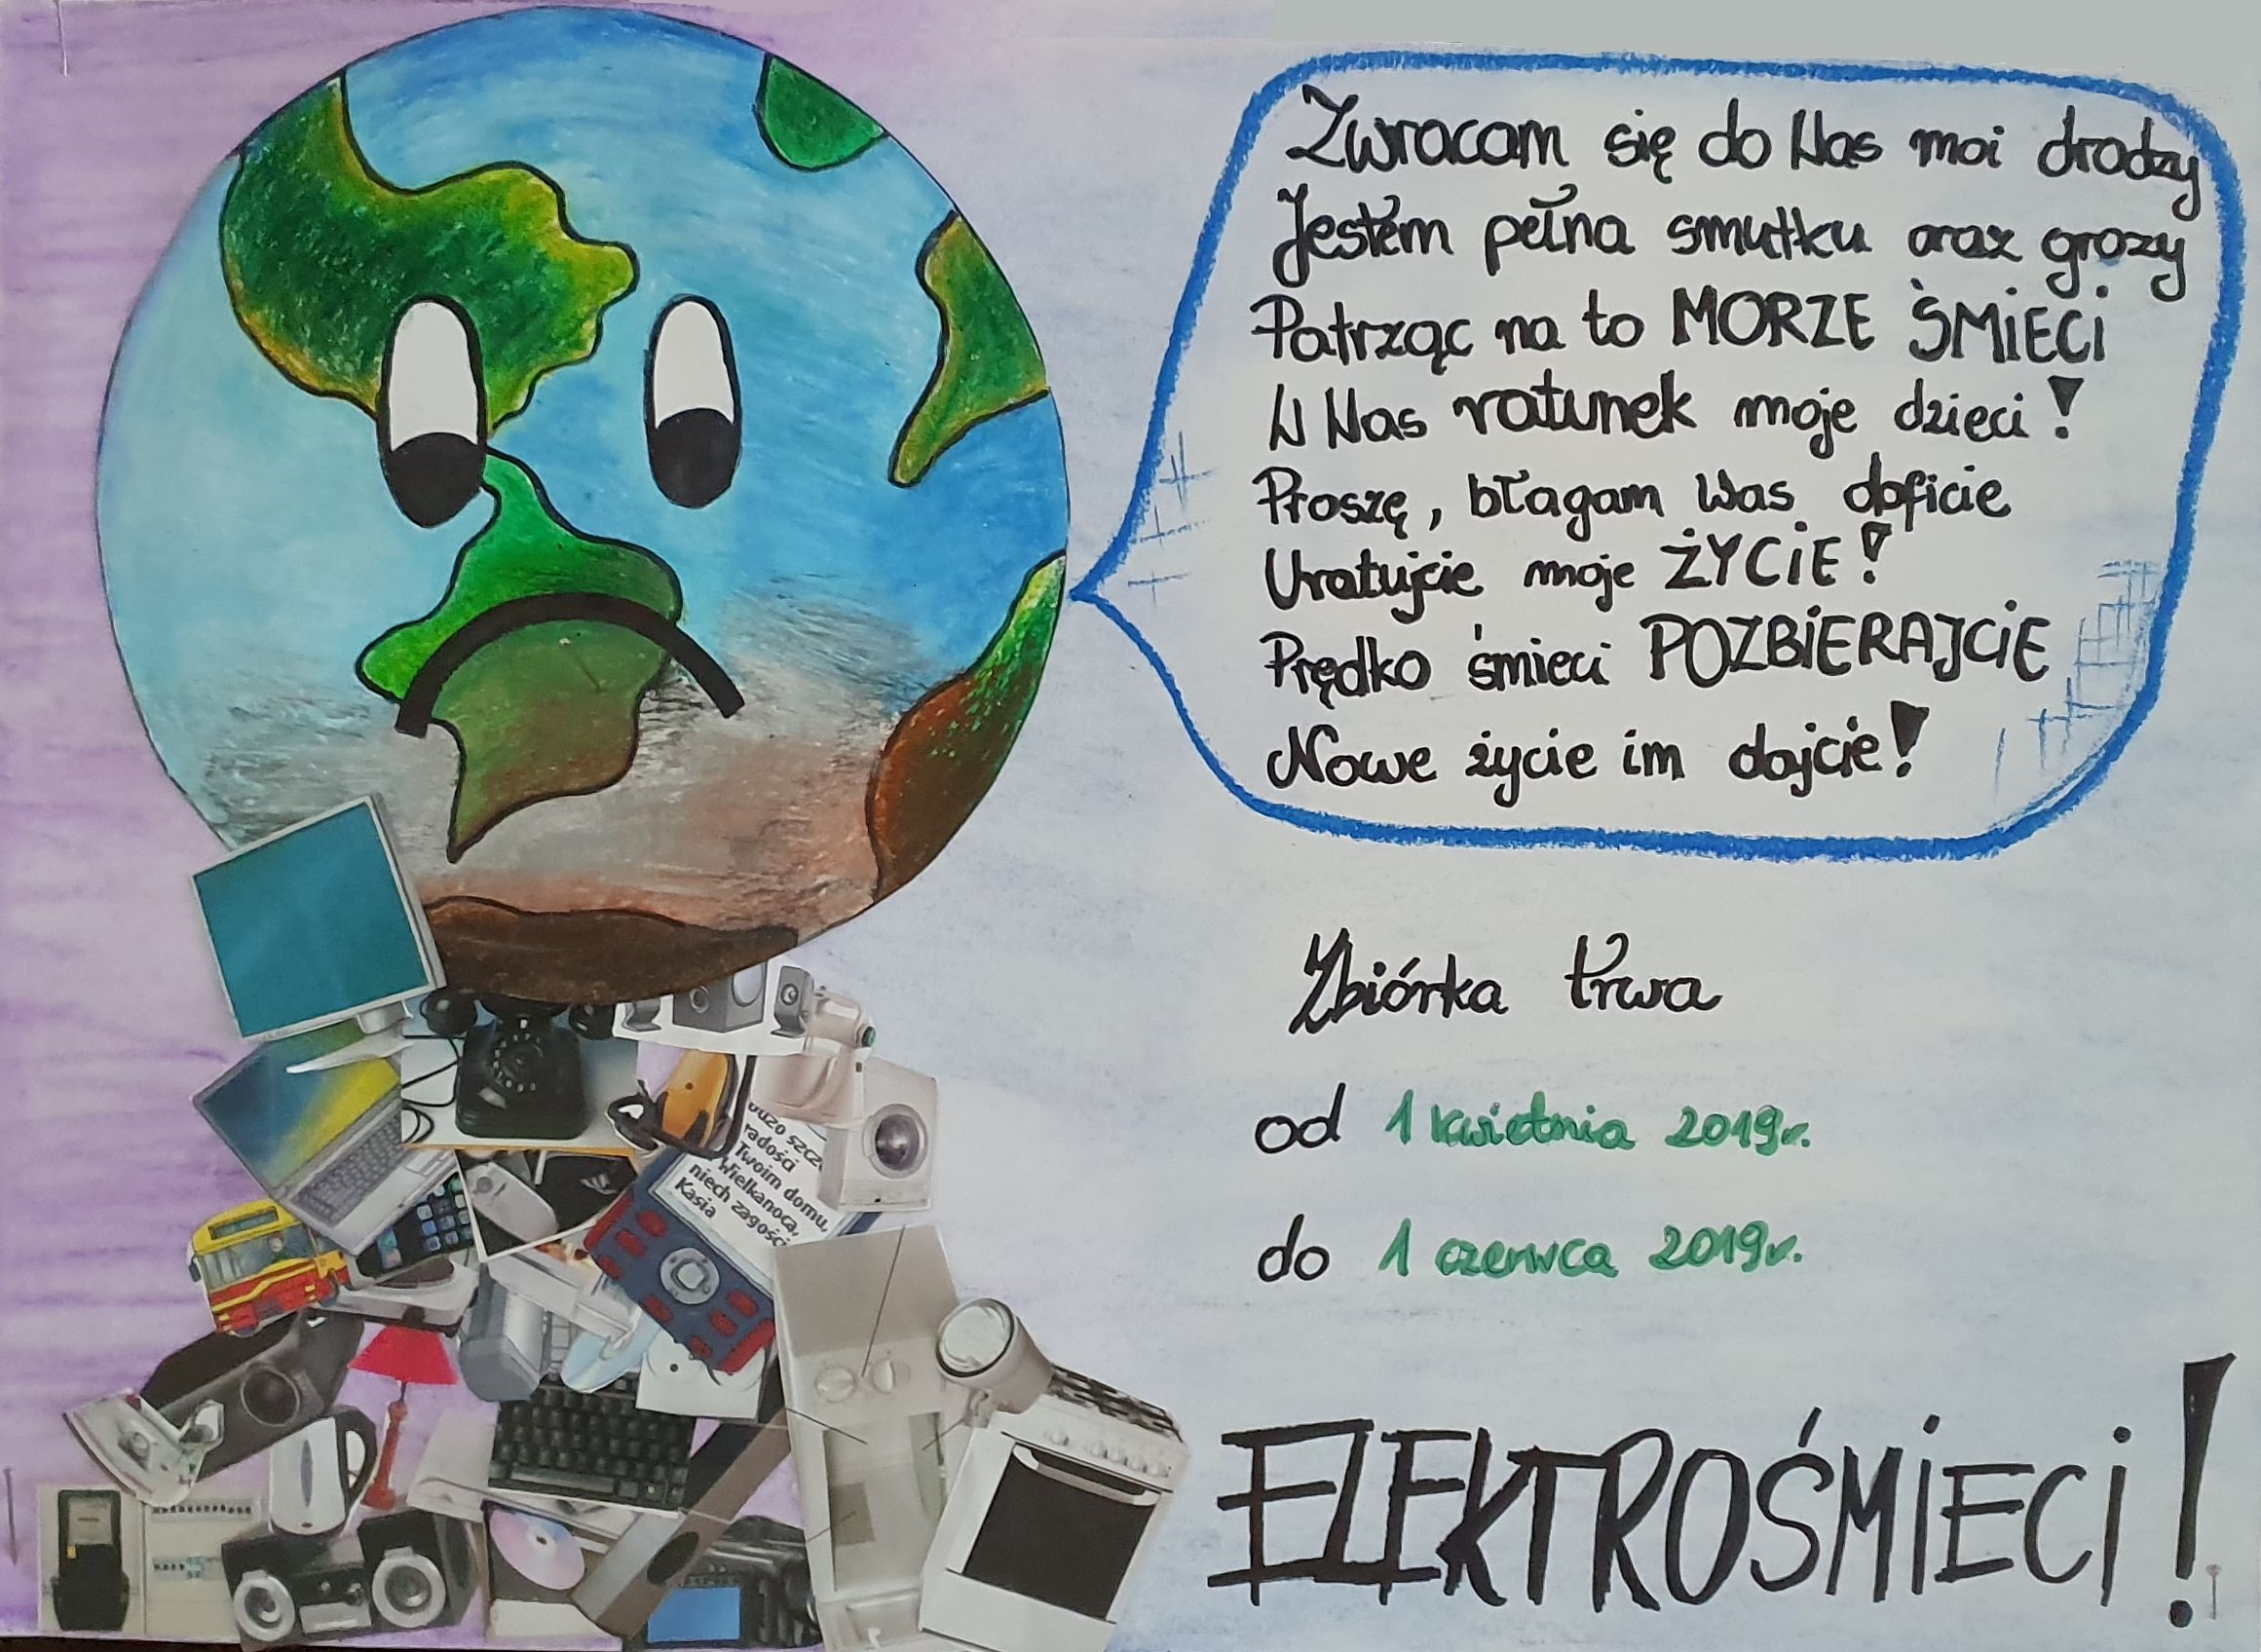 Zwracam się do Was moi drodzy
Jestem pełna smutku oraz grozy
Patrząc na to MORZE ŚMIECI
W Was ratunek moje dzieci!
Proszę, błagam Was obficie
Uratujcie moje ŻYCIE!
Prędko śmieci POZBIERAJCIE
Nowe życie im dajcie!
Zbiórka trwa
od 1 kwietnia 2019r.
do 1 czerwca 2019r.
ELEKTROŚMIECI!
radości
Twoim domu,
Wielkanoca,
niech zagości
Kasia